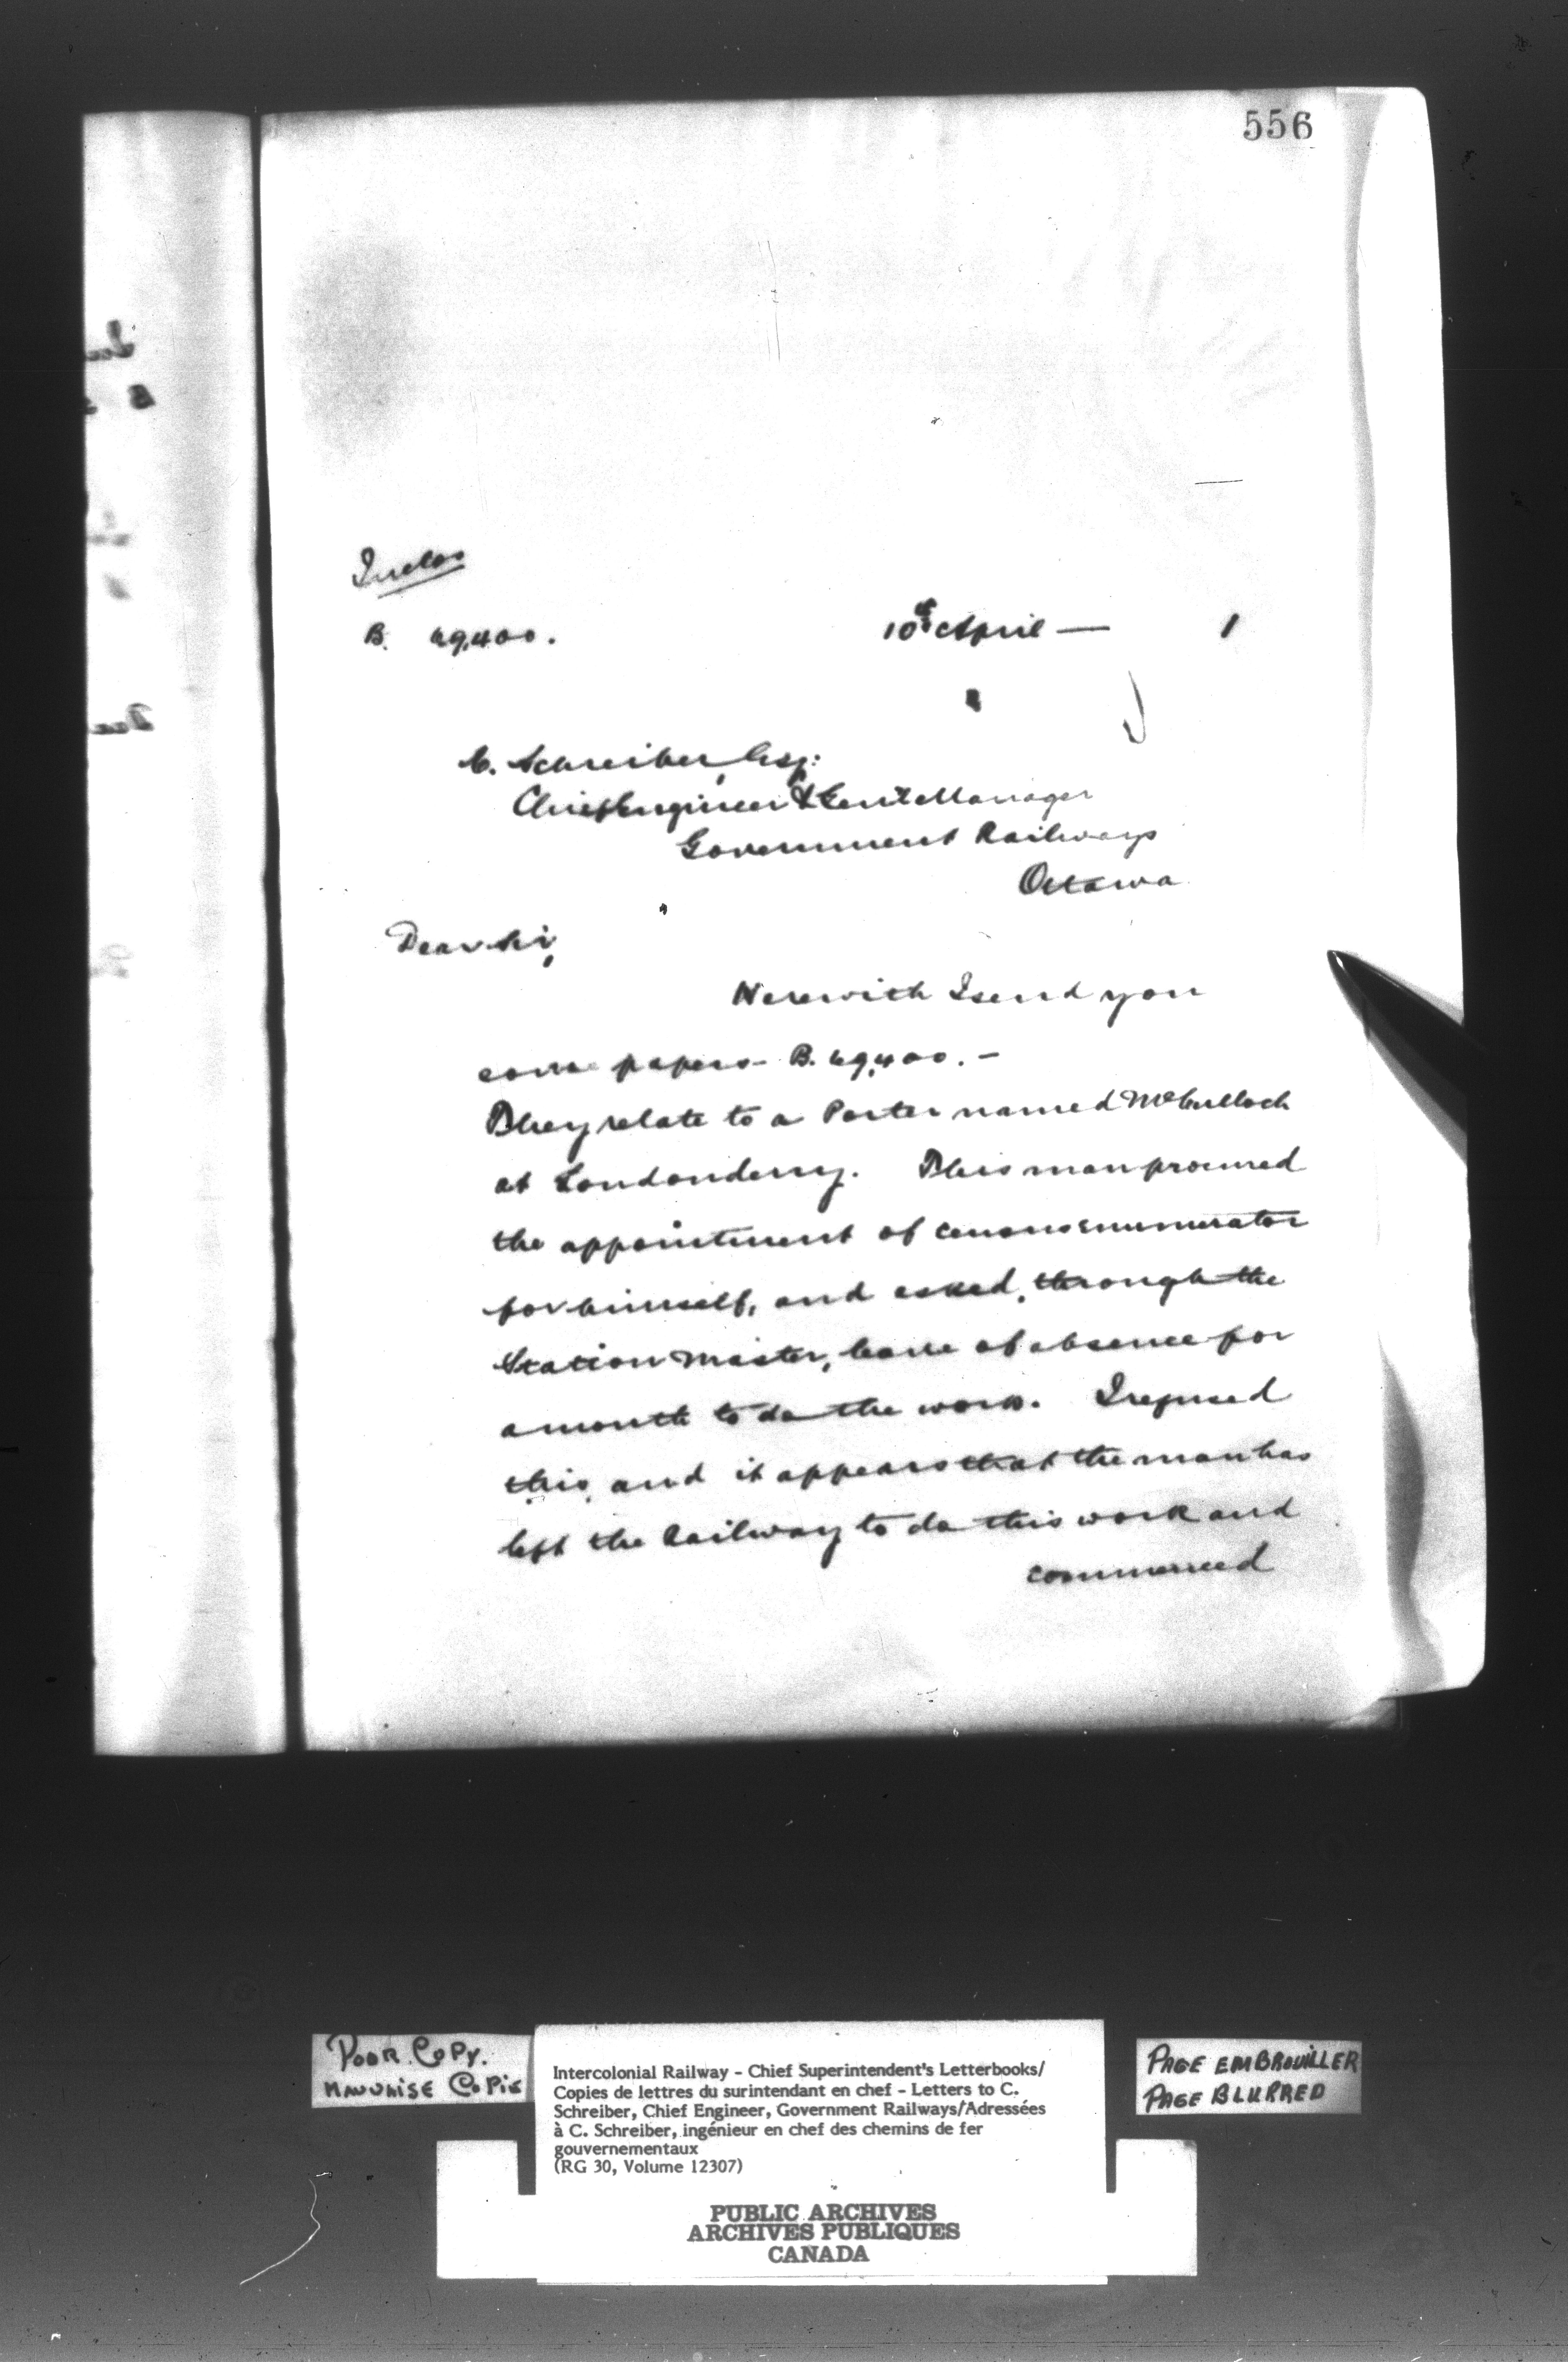 556
Inclos
B. 69,400.
10th April — 1
C. Schreiber, Esq:
Chief Engineer & Genl Manager
Government Railways
Ottawa
Dear Sir,
Herewith I send you
some papers - B. 69,400. -
They relate to a Porter named McCulloch
at Londonderry. This man procured
the appointment of census enumerator
for himself, and asked, through the
Station Master, leave of absence for
a month to do the work. I refused
this, and it appears that the man has
left the Railway to do this work and
commenced
POOR COPY.
MAUVAISE COPIE
Intercolonial Railway - Chief Superintendent's Letterbooks/
Copies de lettres du surintendant en chef - Letters to C.
Schreiber, Chief Engineer, Government Railways/Adressées
à C. Schreiber, ingénieur en chef des chemins de fer
gouvernementaux
(RG 30, Volume 12307)
PAGE EMBROUILLER
PAGE BLURRED
PUBLIC ARCHIVES
ARCHIVES PUBLIQUES
CANADA